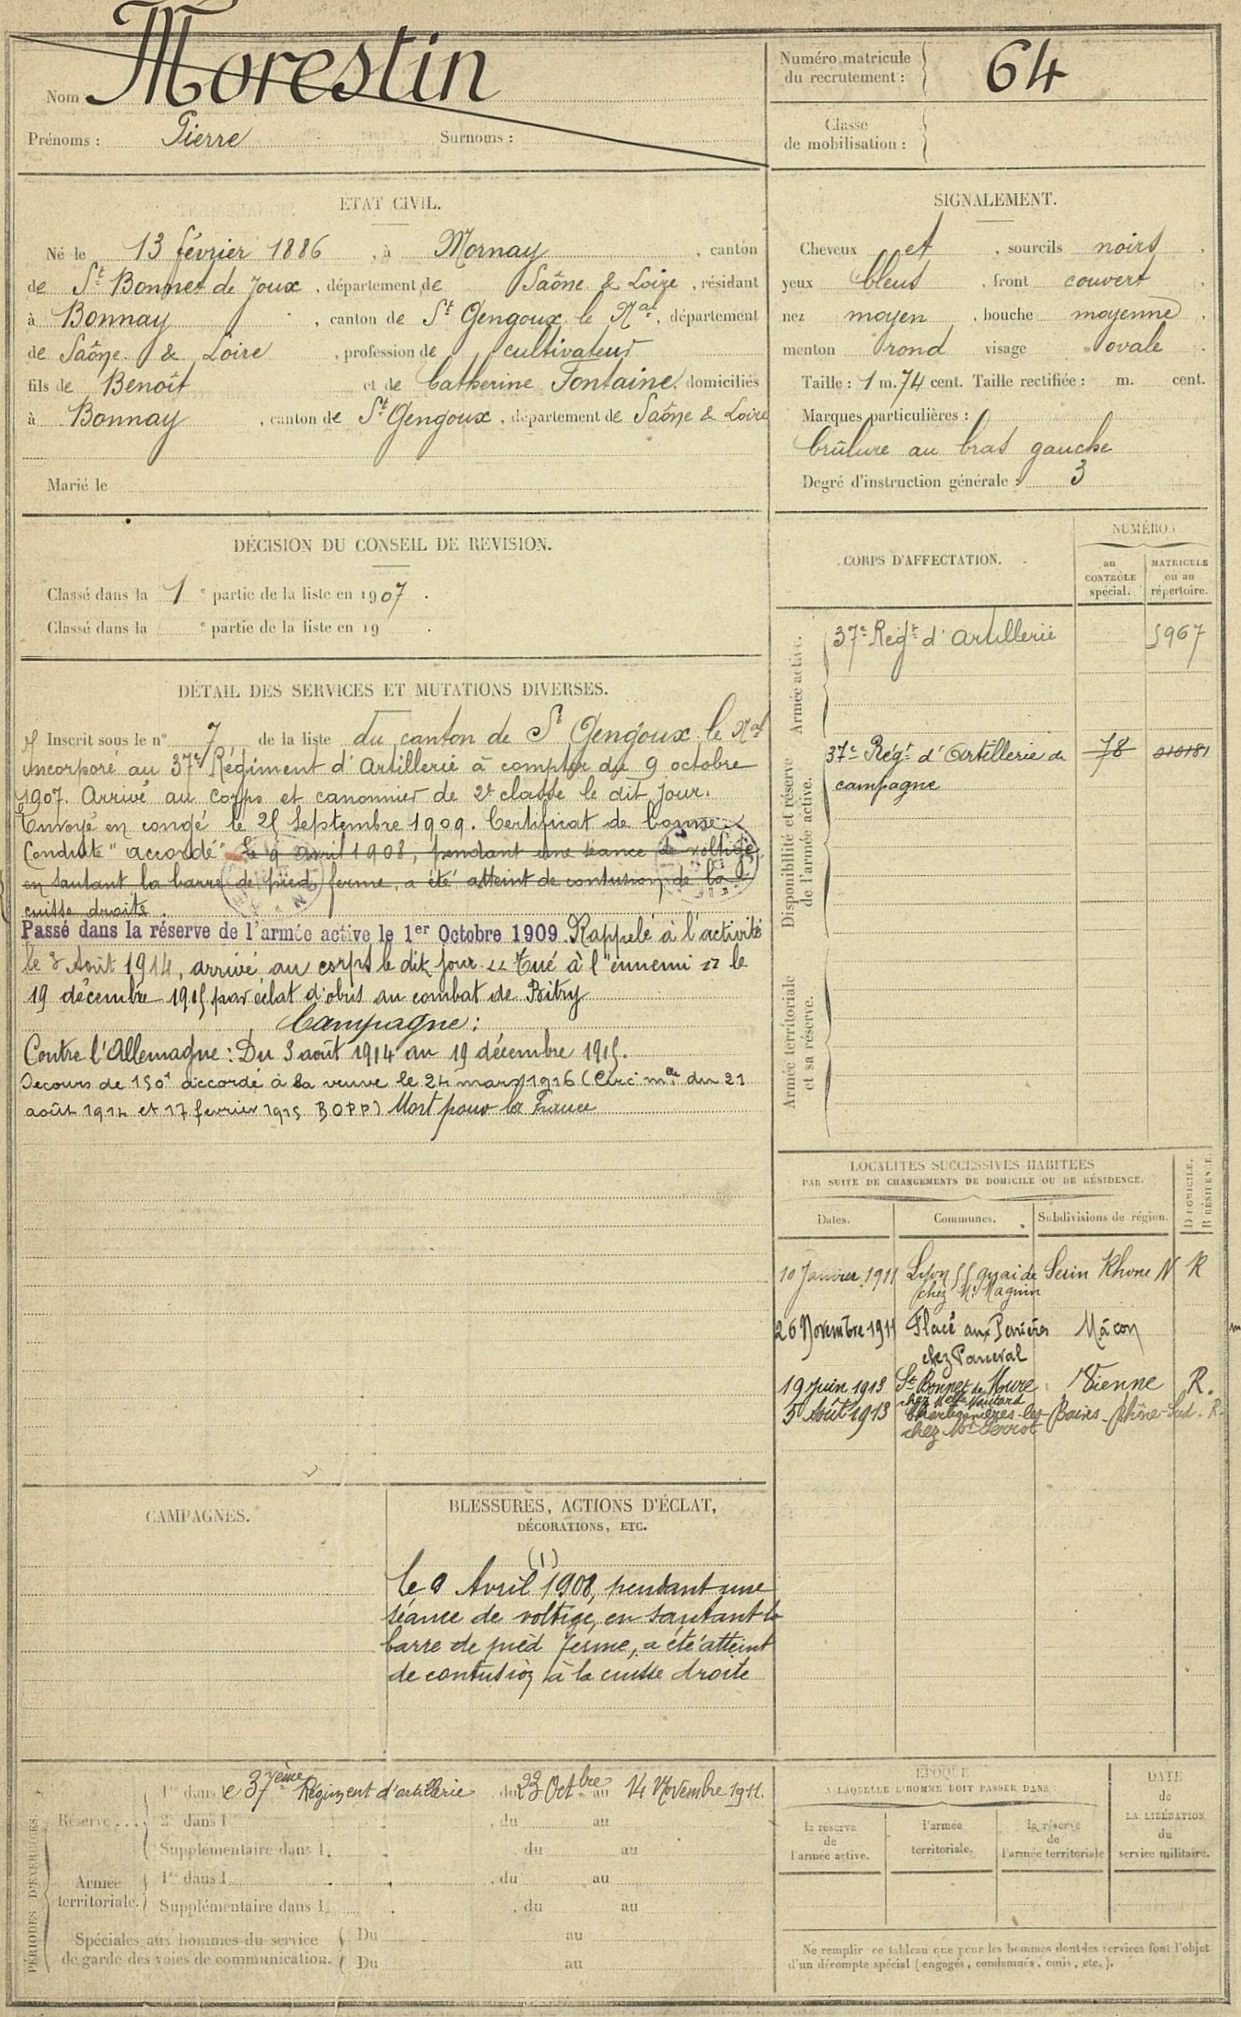 Nom Morestin
Prénoms : Pierre Surnoms :
Numéro matricule du recrutement : 64
Classe de mobilisation :
ETAT CIVIL.
Né le 13 février 1886, à Mornay, canton
de St Bonnet de Joux, département de Saône & Loire, résidant
à Bonnay, canton de St Gengoux le Nal, département
de Saône & Loire, profession de cultivateur
fils de Benoît et de Catherine Fontaine, domiciliés
à Bonnay, canton de St Gengoux, département de Saône & Loire
Marié le
SIGNALEMENT.
Cheveux et, sourcils noirs,
yeux bleus, front couvert,
nez moyen, bouche moyenne,
menton rond visage ovale.
Taille : 1 m. 74 cent. Taille rectifiée : m. cent.
Marques particulières :
brûlure au bras gauche
Degré d'instruction générale : 3
DÉCISION DU CONSEIL DE REVISION.
Classé dans la 1 e partie de la liste en 1907.
Classé dans la e partie de la liste en 19 .
CORPS D'AFFECTATION.
NUMÉROS
au CONTRÔLE spécial.
MATRICULE ou au répertoire.
Armée active.
37e Régt d'Artillerie 5967
Disponibilité et réserve de l'armée active.
37e Régt d'Artillerie de 78
campagne
Armée territoriale et sa réserve.
DÉTAIL DES SERVICES ET MUTATIONS DIVERSES.
Inscrit sous le n° 7 de la liste du canton de St Gengoux le Nal
Incorporé au 37e Régiment d'Artillerie à compter du 9 octobre
1907. Arrivé au corps et canonnier de 2e classe le dit jour.
Envoyé en congé le 25 Septembre 1909. Certificat de bonne
Conduite "accordé" Le 9 avril 1908, pendant une séance de voltige,
en sautant la barre de pied ferme, a été atteint de contusion de la
cuisse droite.
Passé dans la réserve de l'armée active le 1er Octobre 1909. Rappelé à l'activité
le 3 Août 1914, arrivé au corps le dit jour. "Tué à l'ennemi" le
19 décembre 1915 par éclat d'obus au combat de Bitry
Campagne :
Contre l'Allemagne : Du 3 août 1914 au 19 décembre 1915.
Secours de 150f accordé à la veuve le 24 mars 1916 (Circ. mlle du 21
août 1914 et 17 février 1915 BOPP) Mort pour la France
LOCALITÉS SUCCESSIVES HABITÉES
PAR SUITE DE CHANGEMENTS DE DOMICILE OU DE RÉSIDENCE.
Dates. Communes. Subdivisions de région. D DOMICILE. R RÉSIDENCE.
10 Janvier 1911 Lyon 55 quai de Serin Rhone N R
chez Mr Magnin
26 Novembre 1911 Flacé aux Perrières Mâcon
chez Panceval
19 juin 1913 St Bonnet de Mure Vienne R.
chez Melle
5 Août 1913 Charbonnières-les-Bains Rhône-Sud. R.
chez
CAMPAGNES.
BLESSURES, ACTIONS D'ÉCLAT,
DÉCORATIONS, ETC.
(1)
Le 9 Avril 1908, pendant une
séance de voltige, en sautant la
barre de pied ferme, a été atteint
de contusion à la cuisse droite
PÉRIODES D'EXERCICES.
Réserve....
1re dans le 37ème Régiment d'artillerie du 23 Octbre au 14 Novembre 1911.
2e dans l , du au
Supplémentaire dans l. du au
Armée territoriale.
1re dans l , du au
Supplémentaire dans l. , du au
Spéciales aux hommes du service
de garde des voies de communication.
Du au
Du au
ÉPOQUE
À LAQUELLE L'HOMME DOIT PASSER DANS
la réserve de l'armée active.
l'armée territoriale.
la réserve de l'armée territoriale
DATE de LA LIBÉRATION du service militaire.
Ne remplir ce tableau que pour les hommes dont les services font l'objet
d'un décompte spécial (engagés, condamnés, omis, etc.).